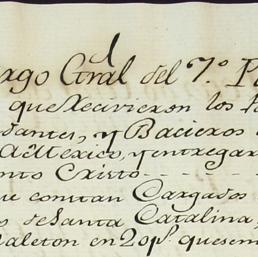 argo Gral del 7.º P
que Recivieron los
dantes, y Bacieros
Mexico, y entregar
nto Cristo
ue constan Cargados
s de Santa Catalina,
aleton en 20 p.s que sem